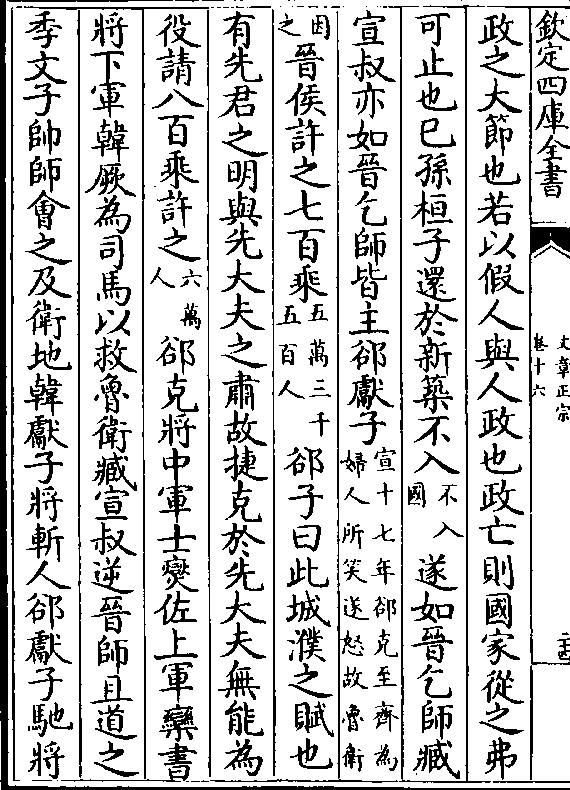 欽定四庫全書
文章正宗
卷十六
二十五
政之大節也若以假人與人政也政亡則國家從之弗
可止也已孫桓子還於新築不入不入國遂如晉乞師臧
宣叔亦如晉乞師皆主郤獻子宣十七年郤克至齊為婦人所笑遂怒故魯衛
因之晉侯許之七百乘五萬二千五百人郤子曰此城濮之賦也
有先君之明與先大夫之肅故捷克於先大夫無能為
役請八百乘許之六萬人郤克將中軍士燮佐上軍欒書
將下軍韓厥為司馬以救魯衛臧宣叔逆晉師且道之
季文子帥師會之及衛地韓獻子將斬人郤獻子馳將